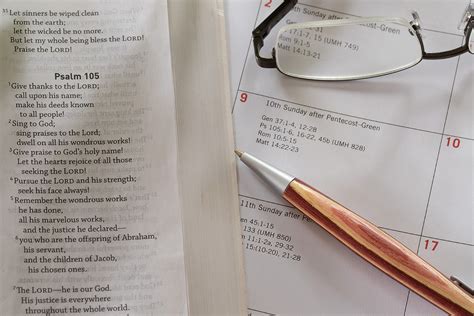 35 Let sinners be wiped clean
from the earth;
let the wicked be no more.
But let my whole being bless the LORD!
Praise the LORD!
Psalm 105
1 Give thanks to the LORD;
call upon his name;
make his deeds known
to all people!
2 Sing to God;
sing praises to the Lord;
dwell on all his wondrous works!
3 Give praise to God's holy name!
Let the hearts rejoice of all those
seeking the LORD!
4 Pursue the LORD and his strength;
seek his face always!
5 Remember the wondrous works
he has done,
all his marvelous works,
and the justice he declared—
6 you who are the offspring of Abraham,
his servant,
and the children of Jacob,
his chosen ones.
7 The LORD—he is our God.
His justice is everywhere
throughout the whole world.
2
9th Sunday after Pentecost-Green
17:1-7, 15 (UMH 749)
Rom 9:1-5
Matt 14:13-21
3
9
10th Sunday after Pentecost-Green
Gen 37:1-4, 12-28
Ps 105:1-6, 16-22, 45b (UMH 828)
Rom 10:5-15
Matt 14:22-33
10
11th Sunday after Pentecost-Green
45:1-15
133 (UMH 850)
11:1-2a, 29-32
15:
17